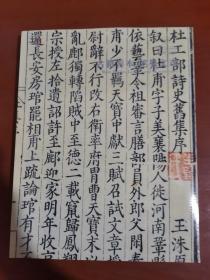 杜工部詩史舊集序
王洙原
叙曰杜甫字子美襄陽人徙河南鞏縣
依藝鞏令祖審言膳部員外郎父閑奉
甫少不羈天寶中獻三賦召試文章授
尉辭不行改右衛率府胄曹天寶末以
亂鄜獨轉陷賊中至德二載竄歸鳳翔
宗授左拾遺詔許至鄜迎家明年收京
還長安房琯罷相甫上疏論琯有才